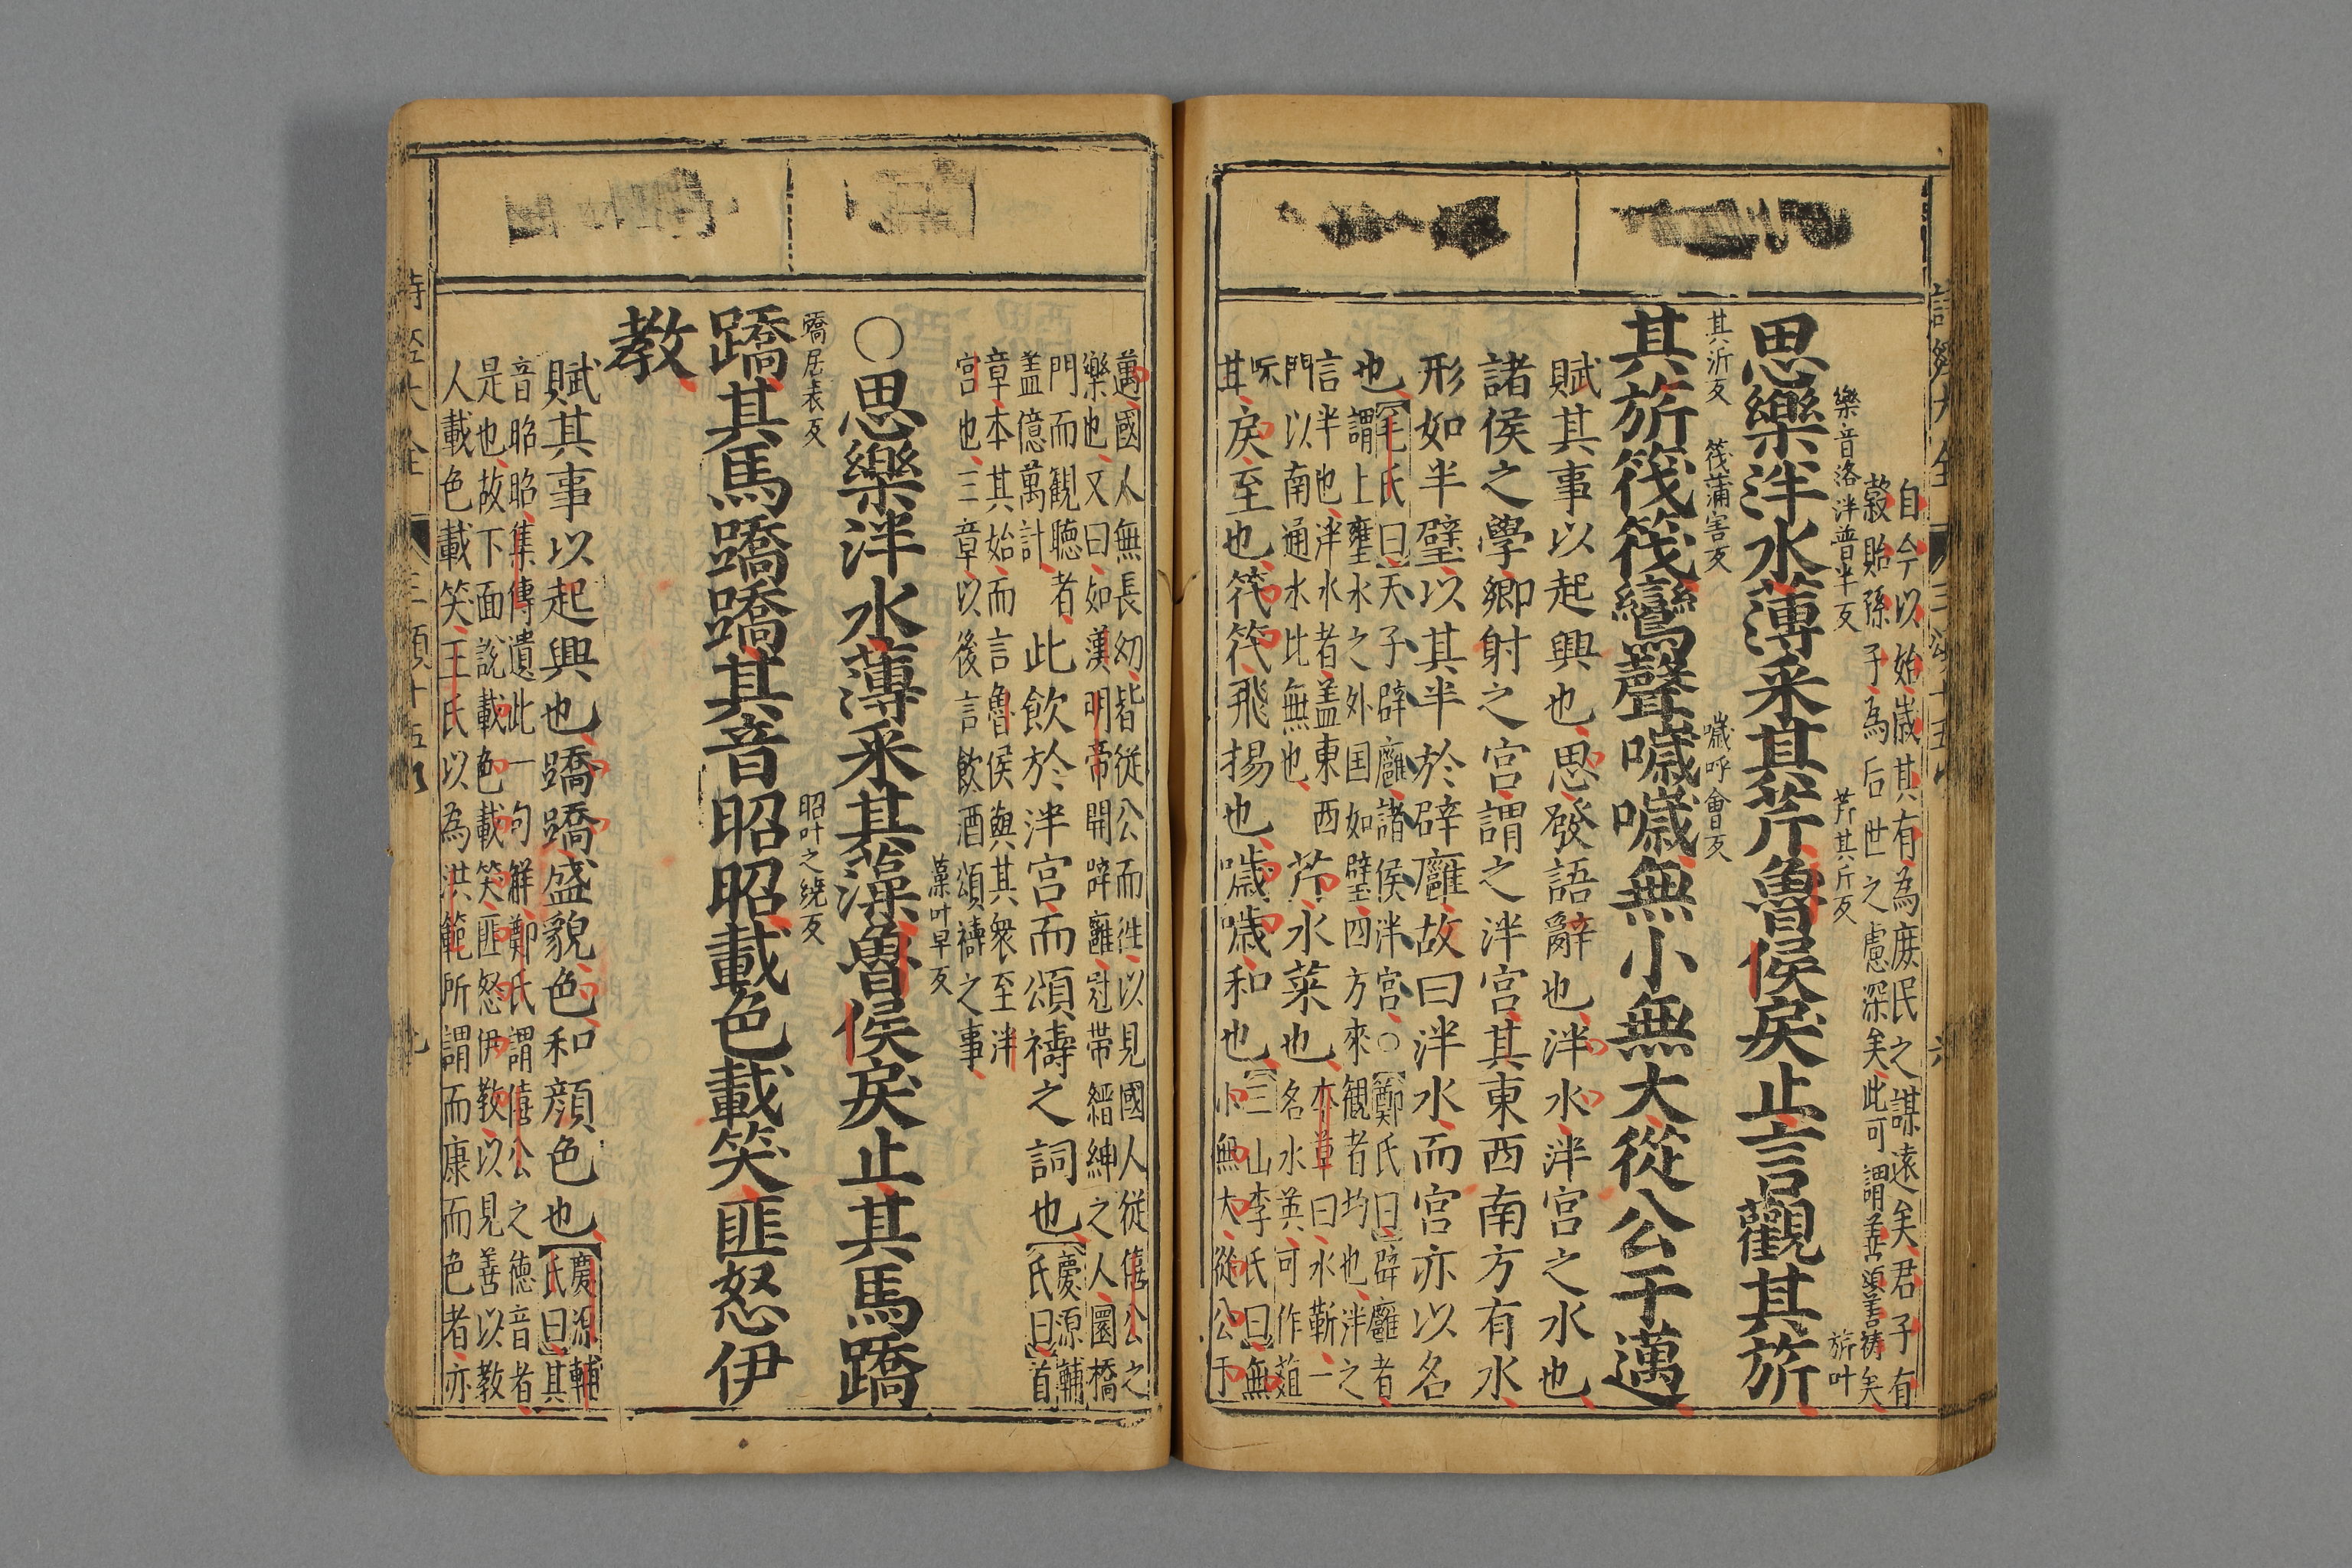 自今以始歲其有為庶民之謀遠矣君子有
穀貽孫子為后世之慮深矣此可謂善頌善祷矣
樂音洛泮普半反 芹其斤反 旂叶
思樂泮水薄采其芹魯侯戾止言觀其旂
其沂反 筏蒲害反 噦呼會反
其旂筏筏鸞聲噦噦無小無大從公于邁
賦其事以起興也思發語辭也泮水泮宮之水也
諸侯之學鄉射之宮謂之泮宮其東西南方有水
形如半璧以其半於辟廱故曰泮水而宮亦以名
也【毛氏曰】天子辟廱諸侯泮宮○【鄭氏曰】辟廱者
謂上壅水之外国如璧四方來觀者均也泮之
言半也泮水者盖東西
門以南通水比無也
芹水菜也
本草曰水蘄一
名水英可作菹
戾至也筏筏飛揚也噦噦和也
【三山李氏曰】無
小無大從公于
邁國人無長幼皆從公而往以見國人從僖公之
樂也又曰如漢明帝開辟廱冠带縉紳之人圜橋
門而觀聽者
盖億萬計
此飲於泮宮而頌禱之詞也
【慶源輔
氏曰】首
章本其始而言魯侯與其衆至泮
宮也三章以後言飲酒頌禱之事
藻叶早反
○思樂泮水薄采其藻魯侯戾止其馬蹻
蹻居表反 昭叶之繞反
蹻其馬蹻蹻其音昭昭載色載笑匪怒伊
教
賦其事以起興也蹻蹻盛貌色和顔色也
【慶源輔
氏曰】其
音昭昭集傳遺此一句解鄭氏謂僖公之德音者
是也故下面說載色載笑匪怒伊教以見善以教
人載色載笑王氏以為洪範所謂而康而色者亦
詩經大全 三頌十五